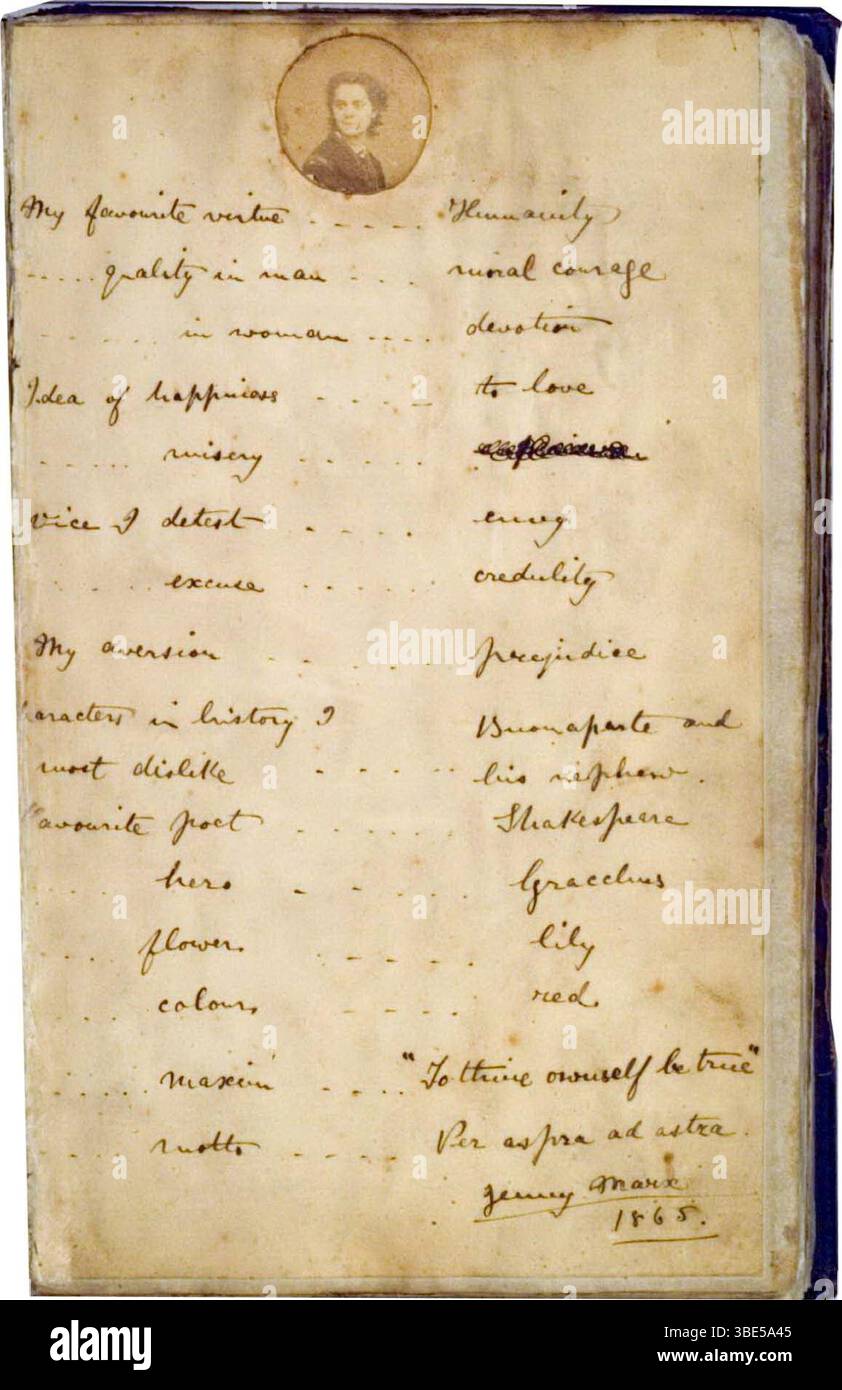 My favourite virtue ..... Humanity
..... quality in man ... moral courage
...... in woman .... devotion
Idea of happiness ..... to love
..... misery .....
vice I detest .... envy
..... excuse ...... credulity
My aversion ..... prejudice
aracters in history I Buonaparte and
most dislike ..... his nephew.
avourite poet ...... Shakespeare
.... hero ..... Gracchus
.... flower ..... lily
.... colour .... red
..... maxim .... "To thine ownself be true"
.... motto .... Per aspra ad astra.
Jenny Marx
1865.
alamy
Image ID: 3BE5A45
www.alamy.com